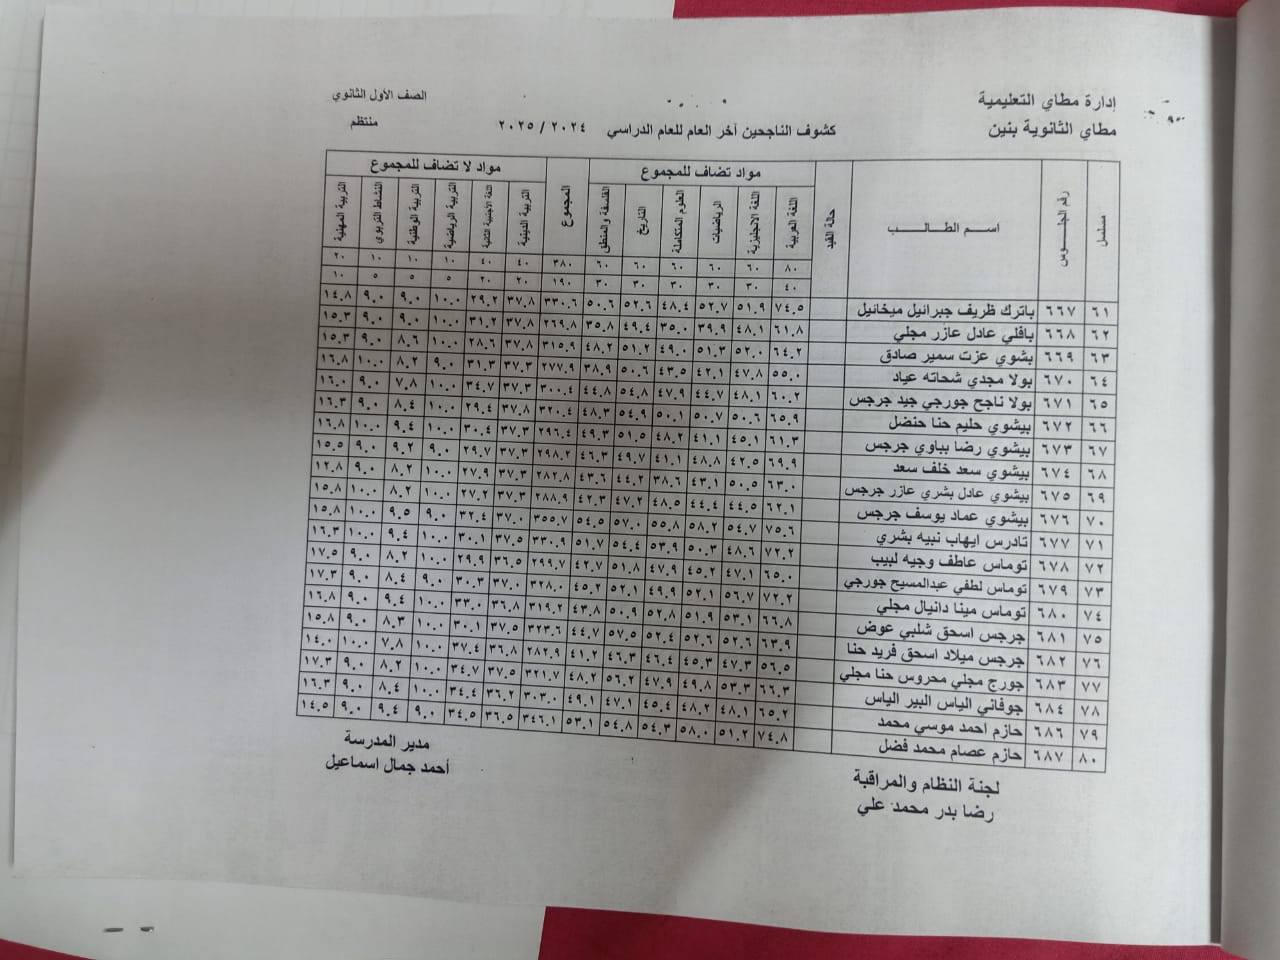 إدارة مطاي التعليمية
مطاي الثانوية بنين
الصف الأول الثانوي
منتظم
كشوف الناجحين آخر العام للعام الدراسي ٢٠٢٤ / ٢٠٢٥
مسلسل رقم الجلـــوس اســـم الطـالـــــب حالة القيد مواد تضاف للمجموع المجموع مواد لا تضاف للمجموع
اللغة العربية اللغة الانجليزية الرياضيات العلوم المتكاملة التاريخ الفلسفة والمنطق التربية الدينية اللغة الأجنبية الثانية التربية الرياضية التربية الوطنية النشاط التربوي التربية المهنية
٨٠ ٦٠ ٦٠ ٦٠ ٦٠ ٦٠ ٣٨٠ ٤٠ ٤٠ ١٠ ١٠ ١٠ ٢٠
٤٠ ٣٠ ٣٠ ٣٠ ٣٠ ٣٠ ١٩٠ ٢٠ ٢٠ ٥ ٥ ٥ ١٠
٦١ ٦٦٧ باترك ظريف جبرائيل ميخائيل ٧٤.٥ ٥١.٩ ٥٢.٧ ٤٨.٤ ٥٢.٦ ٥٠.٦ ٣٣٠.٦ ٣٧.٨ ٢٩.٢ ١٠.٠ ٩.٠ ٩.٠ ١٤.٨
٦٢ ٦٦٨ بافلي عادل عازر مجلي ٦١.٨ ٤٨.١ ٣٩.٩ ٣٥.٠ ٤٩.٤ ٣٥.٨ ٢٦٩.٨ ٣٧.٨ ٣١.٢ ١٠.٠ ٩.٠ ٩.٠ ١٥.٣
٦٣ ٦٦٩ بشوي عزت سمير صادق ٦٤.٢ ٥٢.٠ ٥١.٣ ٤٩.٠ ٥١.٢ ٤٨.٢ ٣١٥.٩ ٣٧.٨ ٢٨.٦ ١٠.٠ ٨.٦ ٩.٠ ١٥.٣
٦٤ ٦٧٠ بولا مجدي شحاته عياد ٥٥.٠ ٤٧.٨ ٤٢.١ ٤٣.٥ ٥٠.٦ ٣٨.٩ ٢٧٧.٩ ٣٧.٣ ٣١.٣ ٩.٠ ٨.٢ ١٠.٠ ١٦.٨
٦٥ ٦٧١ بولا ناجح جورجي جيد جرجس ٦٠.٢ ٤٨.١ ٤٤.٧ ٤٧.٩ ٥٤.٨ ٤٤.٨ ٣٠٠.٤ ٣٧.٣ ٣٤.٧ ١٠.٠ ٧.٨ ٩.٠ ١٦.٠
٦٦ ٦٧٢ بيشوي حليم حنا حنضل ٦٥.٩ ٥٠.٦ ٥٠.٧ ٥٠.١ ٥٤.٩ ٤٨.٣ ٣٢٠.٤ ٣٧.٨ ٢٩.٤ ١٠.٠ ٨.٤ ٩.٠ ١٦.٣
٦٧ ٦٧٣ بيشوي رضا بباوي جرجس ٦١.٣ ٤٥.١ ٤١.١ ٤٨.٢ ٥١.٥ ٤٩.٣ ٢٩٦.٤ ٣٧.٣ ٣٠.٤ ١٠.٠ ٩.٤ ١٠.٠ ١٦.٨
٦٨ ٦٧٤ بيشوي سعد خلف سعد ٦٩.٩ ٤٢.٥ ٤٨.٨ ٤١.١ ٤٩.٧ ٤٦.٣ ٢٩٨.٢ ٣٧.٣ ٢٩.٧ ٩.٠ ٩.٢ ٩.٠ ١٥.٥
٦٩ ٦٧٥ بيشوي عادل بشري عازر جرجس ٦٣.٠ ٥٠.٥ ٤٣.١ ٣٨.٦ ٤٤.٢ ٤٣.٦ ٢٨٢.٨ ٣٧.٣ ٢٧.٩ ١٠.٠ ٨.٢ ٩.٠ ١٢.٨
٧٠ ٦٧٦ بيشوي عماد يوسف جرجس ٦٢.١ ٤٤.٥ ٤٤.٤ ٤٨.٥ ٤٧.٢ ٤٢.٣ ٢٨٨.٩ ٣٧.٣ ٢٧.٢ ١٠.٠ ٨.٢ ١٠.٠ ١٥.٨
٧١ ٦٧٧ تادرس ايهاب نبيه بشري ٧٥.٦ ٥٤.٧ ٥٨.٢ ٥٥.٨ ٥٧.٠ ٥٤.٥ ٣٥٥.٧ ٣٧.٠ ٣٢.٤ ٩.٠ ٩.٥ ١٠.٠ ١٥.٨
٧٢ ٦٧٨ توماس عاطف وجيه لبيب ٧٢.٢ ٤٨.٦ ٥٠.٣ ٥٣.٩ ٥٤.٤ ٥١.٧ ٣٣٠.٩ ٣٧.٥ ٣٠.١ ١٠.٠ ٩.٤ ١٠.٠ ١٦.٣
٧٣ ٦٧٩ توماس لطفي عبدالمسيح جورجي ٦٥.٠ ٤٧.١ ٤٥.٢ ٤٧.٩ ٥١.٨ ٤٢.٧ ٢٩٩.٧ ٣٦.٥ ٢٩.٩ ١٠.٠ ٨.٢ ٩.٠ ١٧.٥
٧٤ ٦٨٠ توماس مينا دانيال مجلي ٧٢.٢ ٥٦.٧ ٥٢.١ ٤٩.٩ ٥٢.١ ٤٥.٢ ٣٢٨.٠ ٣٧.٠ ٣٠.٣ ٩.٠ ٨.٤ ٩.٠ ١٧.٣
٧٥ ٦٨١ جرجس اسحق شلبي عوض ٦٦.٨ ٥٣.١ ٥١.٩ ٥٢.٨ ٥٠.٩ ٤٣.٨ ٣١٩.٢ ٣٦.٨ ٣٣.٠ ١٠.٠ ٩.٤ ٩.٠ ١٦.٨
٧٦ ٦٨٢ جرجس ميلاد اسحق فريد حنا ٦٣.٩ ٥٢.٦ ٥٢.٦ ٥٢.٤ ٥٧.٥ ٤٤.٧ ٣٢٣.٦ ٣٧.٥ ٣٠.١ ١٠.٠ ٨.٣ ٩.٠ ١٥.٨
٧٧ ٦٨٣ جورج مجلي محروس حنا مجلي ٥٦.٥ ٤٧.٣ ٤٥.٣ ٤٦.٤ ٤٦.٣ ٤١.٢ ٢٨٢.٩ ٣٦.٨ ٣٧.٤ ١٠.٠ ٧.٨ ١٠.٠ ١٤.٠
٧٨ ٦٨٤ جوفاني الياس البير الياس ٦٦.٣ ٥٣.٣ ٤٩.٨ ٤٧.٩ ٥٦.٢ ٤٨.٢ ٣٢١.٧ ٣٧.٥ ٣٤.٧ ١٠.٠ ٨.٢ ٩.٠ ١٧.٣
٧٩ ٦٨٦ حازم احمد موسي محمد ٦٥.٢ ٤٨.١ ٤٨.٢ ٤٥.٤ ٤٧.١ ٤٩.١ ٣٠٣.٠ ٣٦.٢ ٣٤.٤ ١٠.٠ ٨.٤ ٩.٠ ١٦.٣
٨٠ ٦٨٧ حازم عصام محمد فضل ٧٤.٨ ٥١.٢ ٥٨.٠ ٥٤.٣ ٥٤.٨ ٥٣.١ ٣٤٦.١ ٣٦.٥ ٣٤.٥ ٩.٠ ٩.٤ ٩.٠ ١٤.٥
لجنة النظام والمراقبة
رضا بدر محمد علي
مدير المدرسة
أحمد جمال اسماعيل